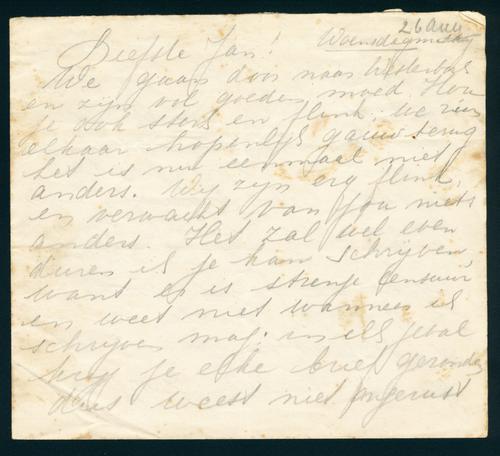 26 Aug
Liefste Jan! Woensdagmiddag
We gaan door naar Westerbork
en zijn vol goeden moed. Hou
je ook sterk en flink. We zien
elkaar hopenlijk gauw terug
het is nu eenmaal niet
anders. Wij zijn erg flink,
en verwacht van jou niets
anders. Het zal wel even
duren ik je kan schrijven,
want er is strenge Censuur
en weet niet wanneer ik
schrijven mag: in elk geval
krijg je elke brief
dus weest niet ongerust